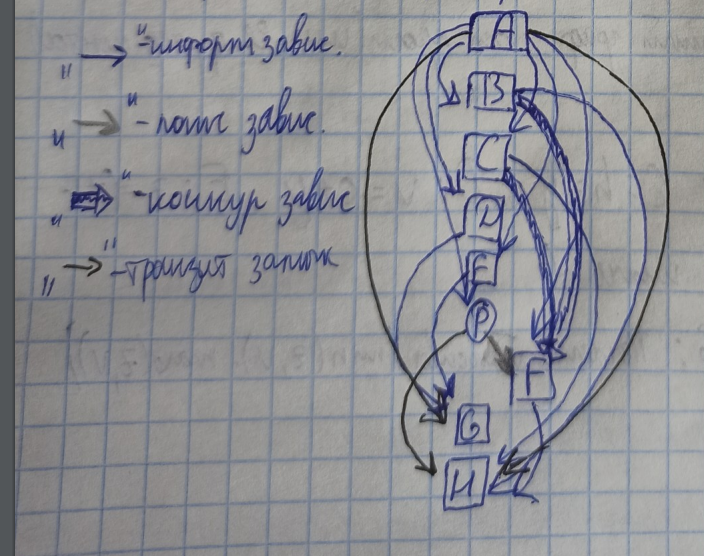 "→"-информ завис.
"→"-логич завис.
"⇒"-конкур завис
"→"-транзит замык
A
B
C
D
E
P
F
G
H